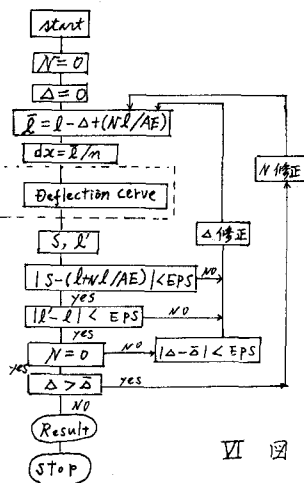 start
N=0
Δ=0
l̄=l-Δ+(Nl/AE)
dx=l̄/n
Deflection cerve
S, l'
|S-(l+Nl/AE)|<EPS
NO
yes
|l'-l|< EPS
NO
yes
N=0
NO
|Δ-Δ̄|< EPS
yes
Δ>Δ̄
yes
NO
Result
Stop
Δ修正
N修正
VI 図